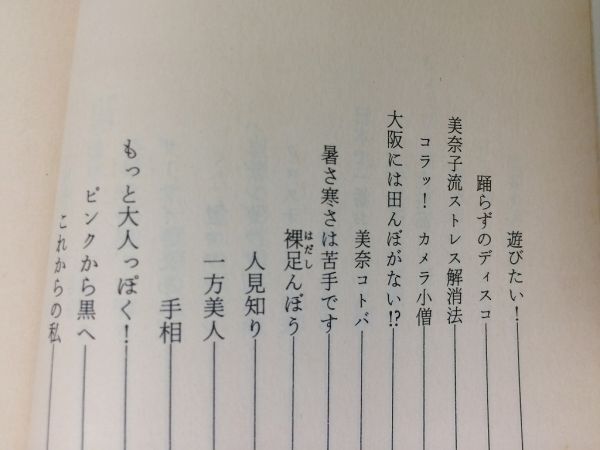 遊びたい！
踊らずのディスコ
美奈子流ストレス解消法
コラッ！ カメラ小僧
大阪には田んぼがない!?
美奈コトバ
暑さ寒さは苦手です
裸足んぼう
はだし
人見知り
一方美人
手相
もっと大人っぽく！
ピンクから黒へ
これからの私